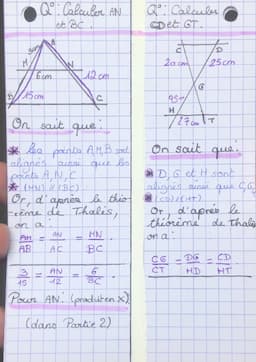 Q°: Calculer AN
et BC.
A
3cm
M
N
6cm
12cm
15cm
B
C
On sait que:
* Les points A,M,B sont
alignés ainsi que les
points A, N, C
* (MN) // (BC)
Or, d'après le théo-
rème de Thalès,
on a:
AM = AN = MN
AB AC BC
3 = AN = 6
15 12 BC
Pour AN: (produit en X)
(dans Partie 2)
Q°: Calculer
CD et GT.
C
D
20cm
25cm
G
H
27cm
T
On sait que:
* D, G et H sont
alignés ainsi que C,G,
* (CD)//(HT)
Or, d'après le
théorème de Thalès
on a:
CG = DG = CD
CT HD HT